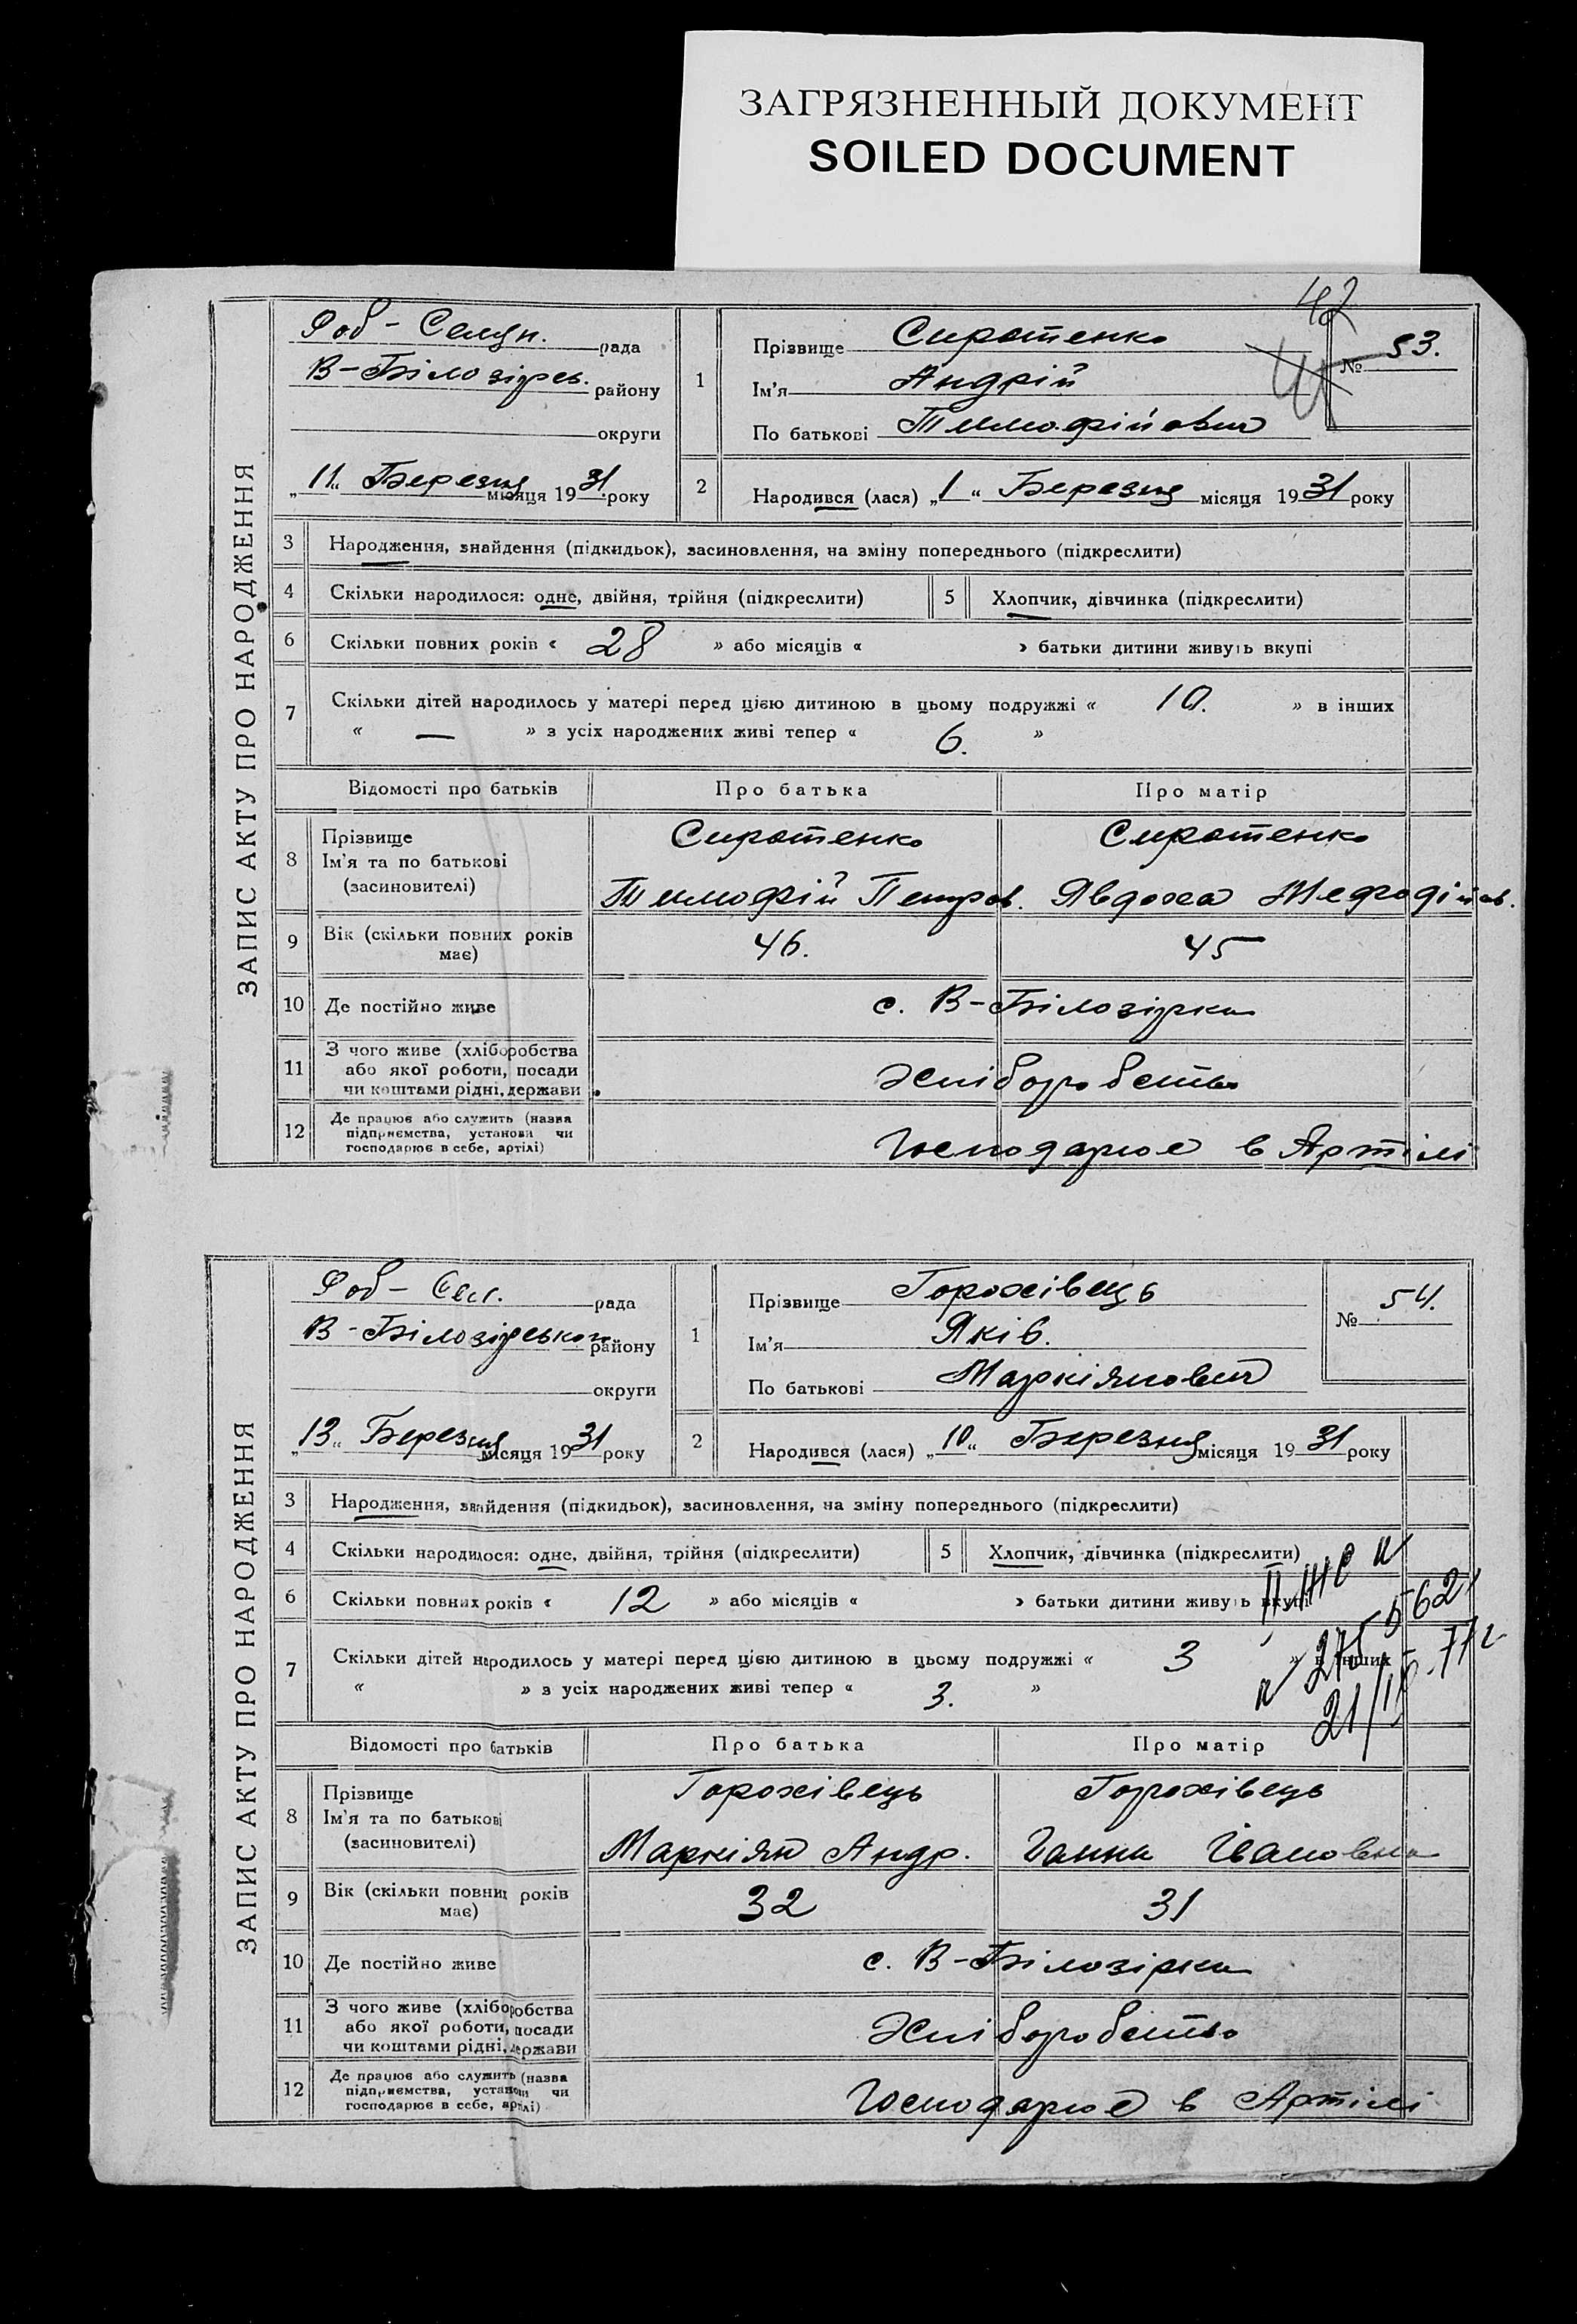 ЗАГРЯЗНЕННЫЙ ДОКУМЕНТ
SOILED DOCUMENT
42
ЗАПИС АКТУ ПРО НАРОДЖЕННЯ
Роб-Селян. рада
В-Білозірсь. району
округи
„11“ Березня місяця 1931 року
1
Прізвище Сиротенко
Ім'я Андрій
По батькові Тимофійович
№ 53.
2
Народився (лася) „1“ Березня місяця 1931 року
3 Народження, знайдення (підкидьок), засиновлення, на зміну попереднього (підкреслити)
4 Скільки народилося: одне, двійня, трійня (підкреслити) 5 Хлопчик, дівчинка (підкреслити)
6 Скільки повних років « 28 » або місяців « » батьки дитини живуть вкупі
7 Скільки дітей народилось у матері перед цією дитиною в цьому подружжі « 10. » в інших
« — » з усіх народжених живі тепер « 6. »
Відомості про батьків Про батька Про матір
8 Прізвище
Ім'я та по батькові
(засиновителі)
Сиротенко Сиротенко
Тимофій Петров. Явдоха Мефодійов.
9 Вік (скільки повних років
має) 46. 45
10 Де постійно живе с. В-Білозірка
11 З чого живе (хліборобства
або якої роботи, посади
чи коштами рідні, держави
Хліборобство
12 Де працює або служить (назва
підприємства, установи чи
господарює в себе, артілі)
Господарює в Артілі
ЗАПИС АКТУ ПРО НАРОДЖЕННЯ
Роб-Сел. рада
В-Білозірського району
округи
„13“ Березня місяця 1931 року
1
Прізвище Горохівець
Ім'я Яків.
По батькові Маркіянович
№ 54.
2
Народився (лася) „10“ Березня місяця 1931 року
3 Народження, знайдення (підкидьок), засиновлення, на зміну попереднього (підкреслити)
4 Скільки народилося: одне, двійня, трійня (підкреслити) 5 Хлопчик, дівчинка (підкреслити)
6 Скільки повних років « 12 » або місяців « » батьки дитини живуть вкупі
7 Скільки дітей народилось у матері перед цією дитиною в цьому подружжі « 3 » в інших
« » з усіх народжених живі тепер « 3. »
Відомості про батьків Про батька Про матір
8 Прізвище
Ім'я та по батькові
(засиновителі)
Горохівець Горохівець
Маркіян Андр. Ганна Івановна
9 Вік (скільки повних років
має) 32 31
10 Де постійно живе с. В-Білозірка
11 З чого живе (хліборобства
або якої роботи, посади
чи коштами рідні, держави
Хліборобство
12 Де працює або служить (назва
підприємства, установи чи
господарює в себе, артілі)
Господарює в Артілі